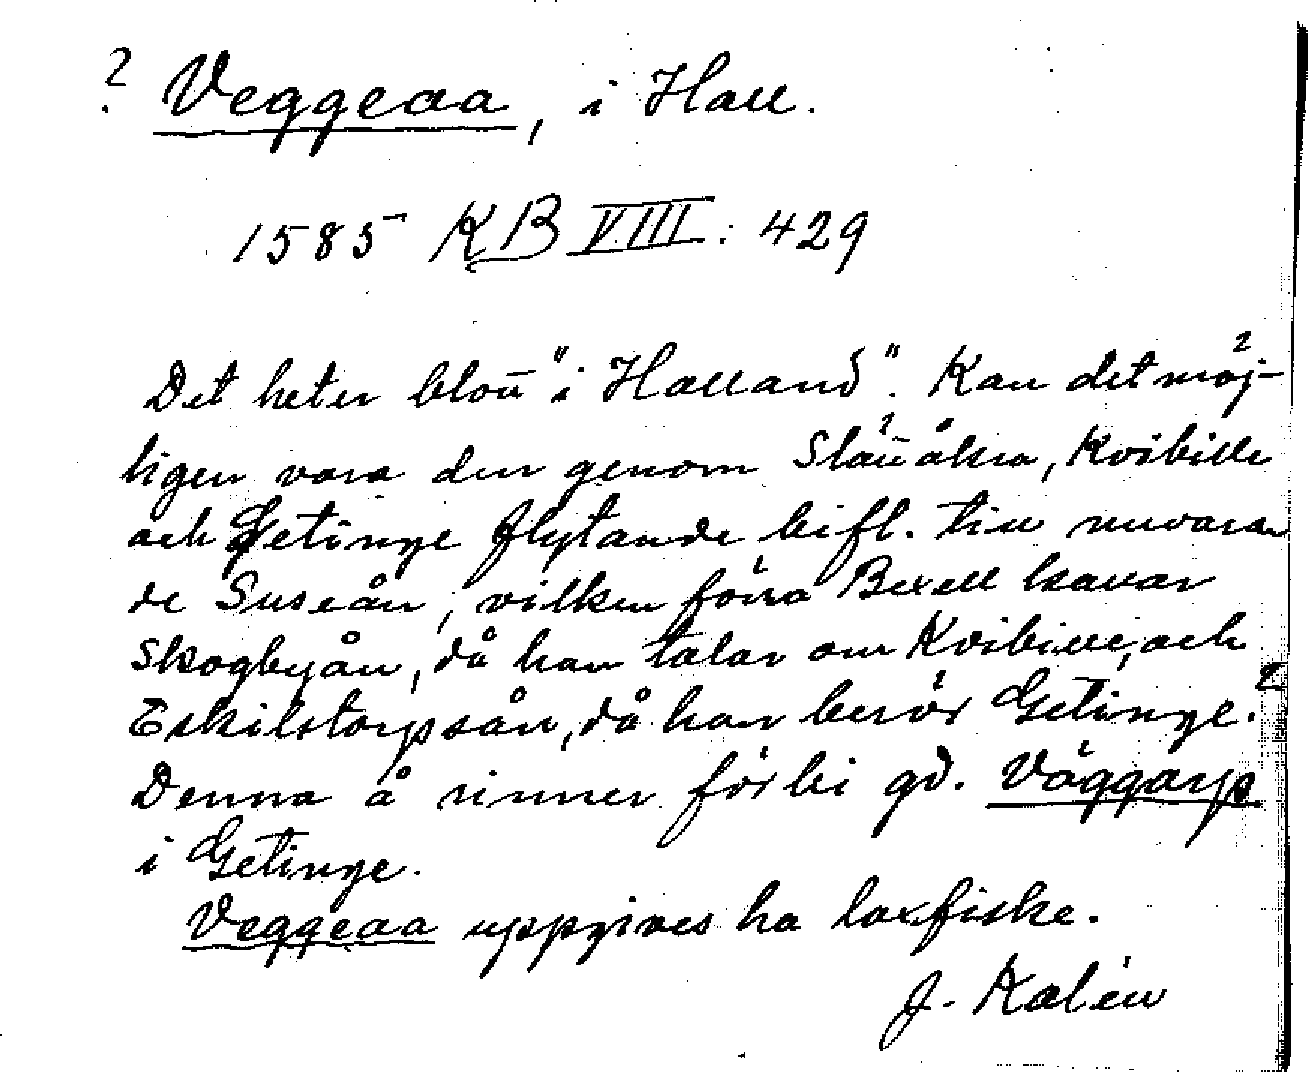 ? Veggeaa, i Hall.
1585 KB VIII: 429
Det heter blott "i Halland". Kan det möj-
ligen vara den genom Slättåkra, Kvibille
och Getinge flytande bifl. till nuvaran
de Suseån, vilken förra Bexell kallar
Skogbyån, då han talar om Kvibille, och
Eskilstorpsån, då han berör Getinge.?
Denna å rinner förbi gd. Väggarp
i Getinge.
Veggeaa uppgives ha laxfiske.
J. Kalén